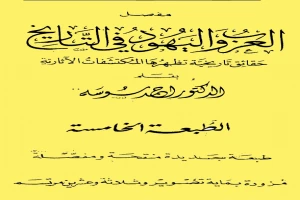 مفصل
العرب واليهود في التاريخ
حقائق تاريخية تظهرها المكتشفات الآثارية
بقلم
الدكتور احمد سوسه
الطبعة الخامسة
طبعة جديدة منقحة ومفصلة
مزودة بماية تصوير وثلاثة وعشرين مرتسم